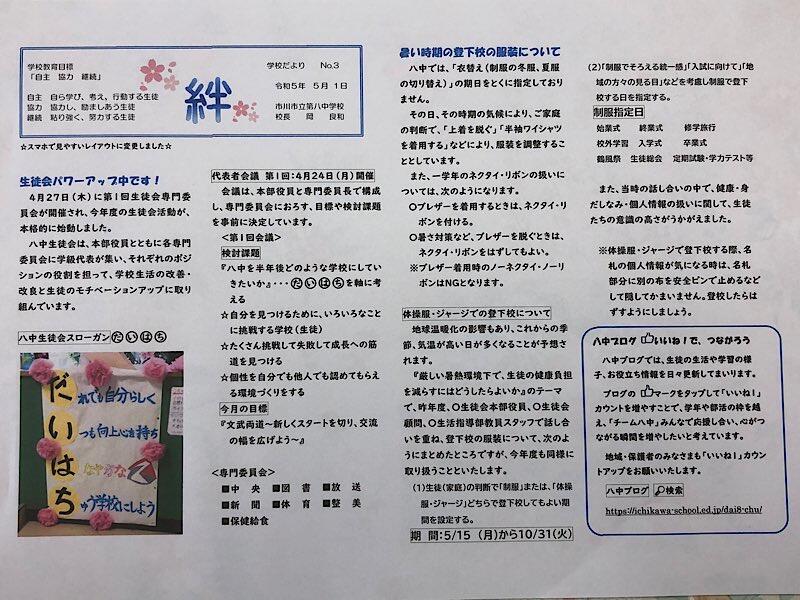 学校教育目標
「自主 協力 継続」
自主 自ら学び、考え、行動する生徒
協力 協力し、励ましあう生徒
継続 粘り強く、努力する生徒
絆
学校だより No.3
令和5年 5月 1日
市川市立第八中学校
校長 岡 良和
☆スマホで見やすいレイアウトに変更しました☆
生徒会パワーアップ中です!
4月27日(木)に第1回生徒会専門委
員会が開催され、今年度の生徒会活動が、
本格的に始動しました。
八中生徒会は、本部役員とともに各専門
委員会に学級代表が集い、それぞれのポジ
ションの役割を担って、学校生活の改善・
改良と生徒のモチベーションアップに取り
組んでいます。
八中生徒会スローガンだいはち
だれでも自分らしく
いつも向上心を持ち
はなやかな
ちゅう学校にしよう
代表者会議 第1回:4月24日(月)開催
会議は、本部役員と専門委員長で構成
し、専門委員会におろす、目標や検討課題
を事前に決定しています。
<第1回会議>
検討課題
『八中を半年後どのような学校にしてい
きたいか』・・・だいはちを軸に考
える
☆自分を見つけるために、いろいろなこと
に挑戦する学校(生徒)
☆たくさん挑戦して失敗して成長への筋
道を見つける
☆個性を自分でも他人でも認めてもらえ
る環境づくりをする
今月の目標
『文武両道~新しくスタートを切り、交流
の幅を広げよう~』
<専門委員会>
■中 央 ■図 書 ■放 送
■新 聞 ■体 育 ■整 美
■保健給食
暑い時期の登下校の服装について
八中では、「衣替え(制服の冬服、夏服
の切り替え)」の期日をとくに指定しており
ません。
その日、その時期の気候により、ご家庭
の判断で、「上着を脱ぐ」「半袖ワイシャツ
を着用する」などにより、服装を調整するこ
ととしています。
また、一学年のネクタイ・リボンの扱いに
ついては、次のようになります。
○ブレザーを着用するときは、ネクタイ・リ
ボンを付ける。
○暑さ対策など、ブレザーを脱ぐときは、
ネクタイ・リボンをはずしてもよい。
※ブレザー着用時のノーネクタイ・ノーリ
ボンはNGとなります。
体操服・ジャージでの登下校について
地球温暖化の影響もあり、これからの季
節、気温が高い日が多くなることが予想さ
れます。
『厳しい暑熱環境下で、生徒の健康負担
を減らすにはどうしたらよいか』のテーマ
で、昨年度、○生徒会本部役員、○生徒会
顧問、○生活指導部教員スタッフで話し合
いを重ね、登下校の服装について、次のよ
うにまとめたところですが、今年度も同様に
取り扱うことといたします。
(1)生徒(家庭)の判断で「制服」または、「体操
服・ジャージ」どちらで登下校してもよい期
間を設定する。
期 間:5/15 (月)から10/31(火)
(2)「制服でそろえる統一感」「入試に向けて」「地
域の方々の見る目」などを考慮し制服で登下
校する日を指定する。
制服指定日
始業式 終業式 修学旅行
校外学習 入学式 卒業式
鶴風祭 生徒総会 定期試験・学力テスト等
また、当時の話し合いの中で、健康・身
だしなみ・個人情報の扱いに関して、生徒
たちの意識の高さがうかがえました。
※体操服・ジャージで登下校する際、名
札の個人情報が気になる時は、名札
部分に別の布を安全ピンで止めるなど
して隠してかまいません。登校したらは
ずすようにしましょう。
八中ブログ いいね!で、つながろう
八中ブログでは、生徒の生活や学習の様
子、お役立ち情報を日々更新してまいります。
ブログの マークをタップして「いいね!」
カウントを増やすことで、学年や部活の枠を越
え、「チーム八中」みんなで応援し合い、心がつ
ながる瞬間を増やしたいと考えています。
地域・保護者のみなさまも「いいね!」カウン
トアップをお願いいたします。
八中ブログ 検索
https://ichikawa-school.ed.jp/dai8-chu/